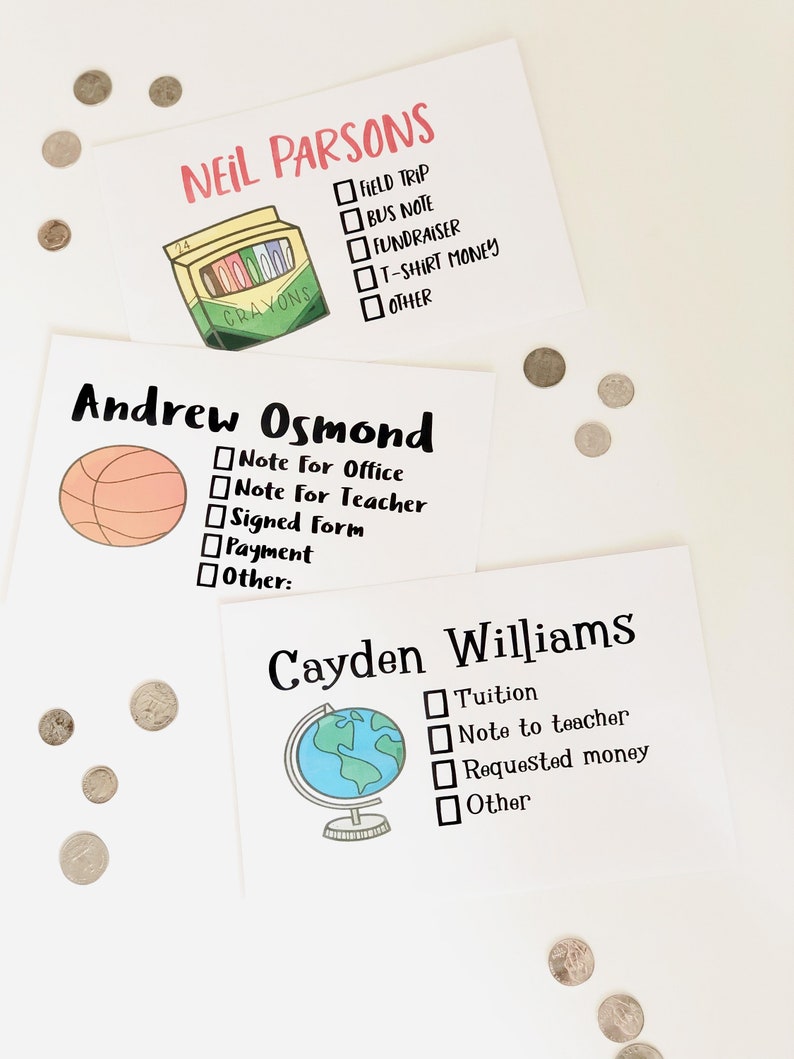 NEIL PARSONS
FIELD TRIP
BUS NOTE
FUNDRAISER
T-SHIRT MONEY
OTHER
24
CRAYONS
Andrew Osmond
Note For Office
Note For Teacher
Signed Form
Payment
Other:
Cayden Williams
Tuition
Note to teacher
Requested money
Other